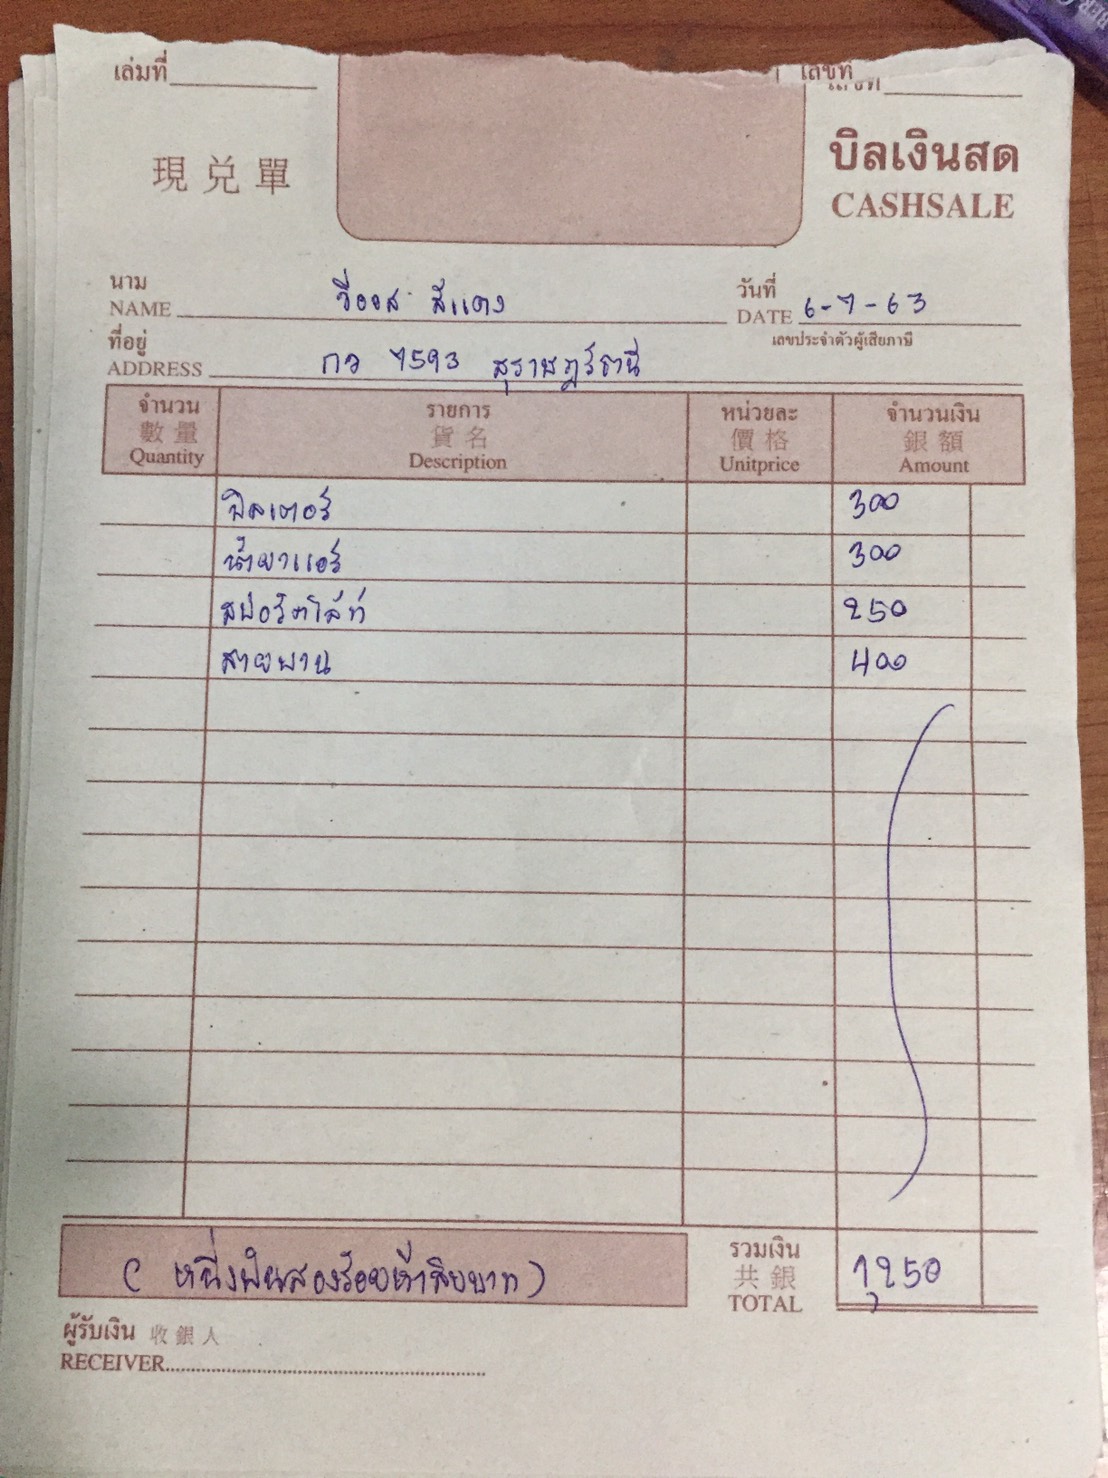 เล่มที่
เลขที่
เลขที่
現兌單
บิลเงินสด
CASHSALE
นาม
NAME วีออส สีแดง
วันที่
DATE 6-7-63
เลขประจำตัวผู้เสียภาษี
ที่อยู่
ADDRESS กว 7593 สุราษฎร์ธานี
จำนวน รายการ หน่วยละ จำนวนเงิน
數量 貨名 價格 銀額
Quantity Description Unitprice Amount
ฟิลเตอร์ 300
น้ำยาแอร์ 300
สปอร์ตไล้ท์ 250
สายพาน 400
(หนึ่งพันสองร้อยห้าสิบบาท)
รวมเงิน
共銀
TOTAL 1,250
ผู้รับเงิน 收銀人
RECEIVER